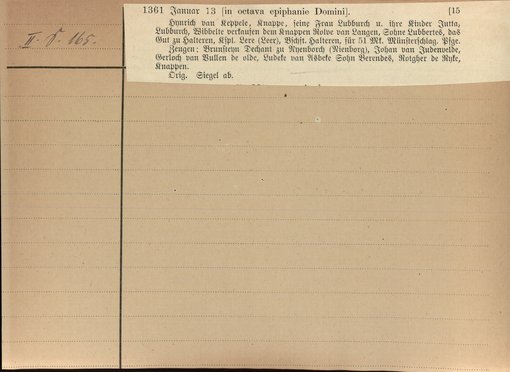 1361 Januar 13 [in octava epiphanie Domini]. [15
Hynrich van Keppele, Knappe, seine Frau Lubburch u. ihre Kinder Jutta,
Lubburch, Bibbelte verkaufen dem Knappen Rolve van Langen, Sohne Lubbertes, das
Gut zu Halteren, Kspl. Lere (Leer), Bschft. Halteren, für 51 Mk. Münsterschlag. Pfge.
Zeugen: Brunsteyn Dechant zu Nyenborch (Nienborg), Johan van Judenvelde,
Gerloch van Bullen de olde, Ludeke van Asbeke Sohn Berendes, Rotgher de Ryke,
Knappen.
Orig. Siegel ab.
II. 165.